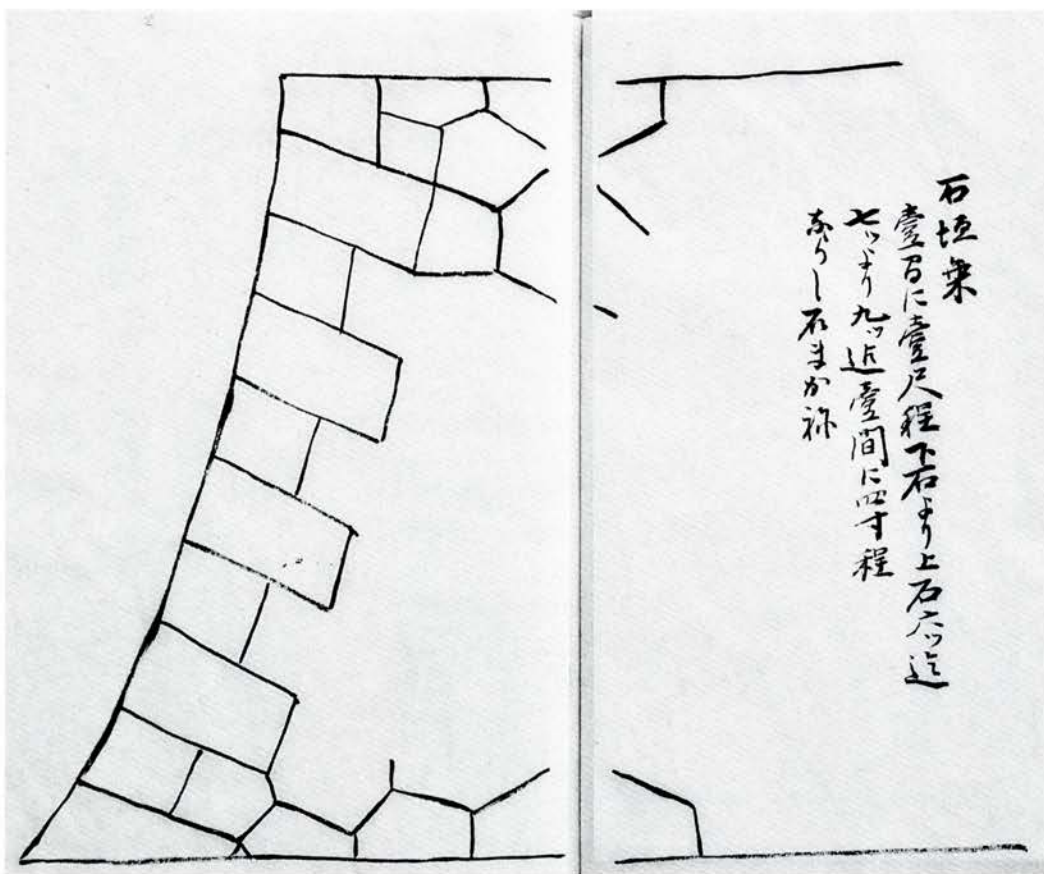 石垣乗
壹間に壹尺程下石より上石六ッ迄
七ッより九ッ迄壹間に四寸程
ならし石まかね